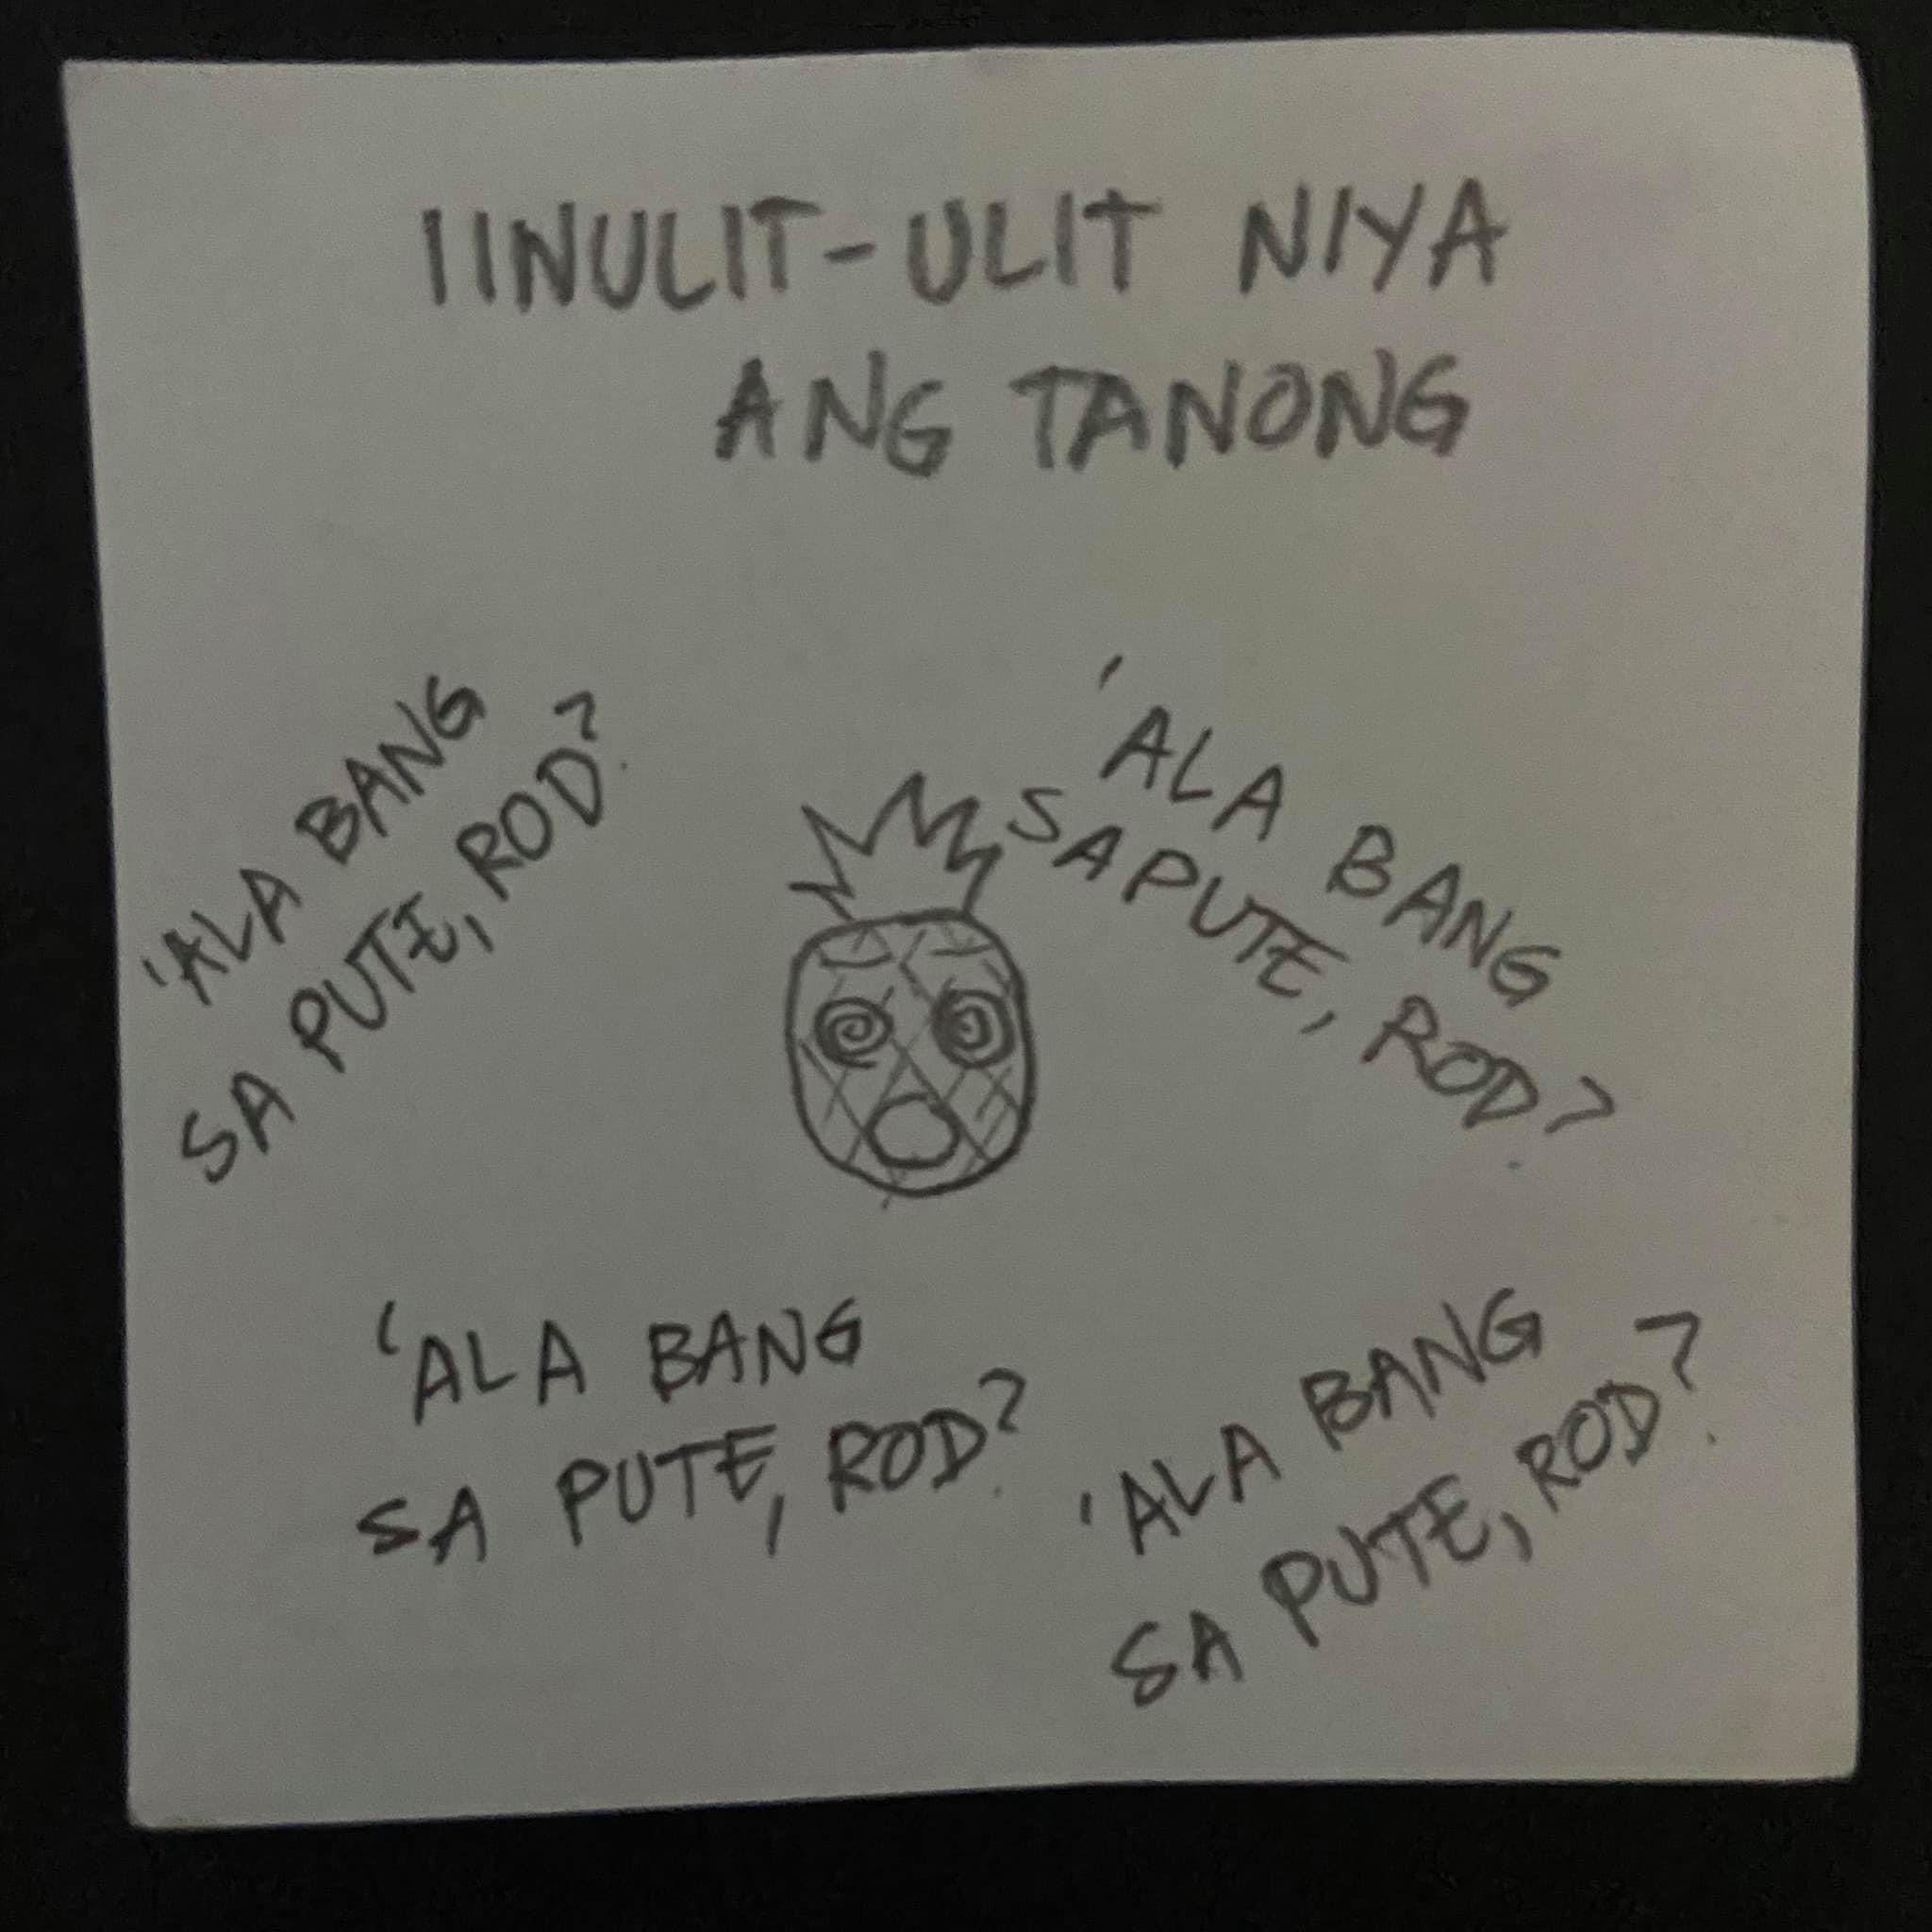 IINULIT-ULIT NIYA
ANG TANONG
'ALA BANG
SA PUTE, ROD?
'ALA BANG
SA PUTE, ROD?
'ALA BANG
SA PUTE, ROD?
'ALA BANG
SA PUTE, ROD?